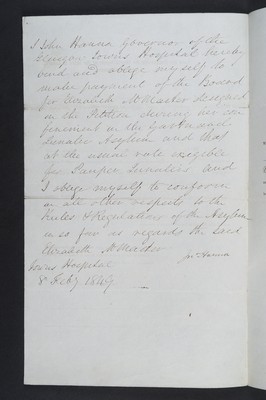 I John Hanna Governor of the
Glasgow Towns Hospital hereby
bind and oblege myself to
make payment of the Board
for Elizabeth McMaster designed
in the Petition during her con
finement in the Gartnavel
Lunatic Asylum and that
at the usual rate exigible
for Pauper Lunatics and
I oblege myself to conform
in all other respects to the
Rules & Regulations of the Asylum
in so far as regards the said
Elizabeth McMaster
Jn Hanna
Towns Hospital
8 Feby 1849